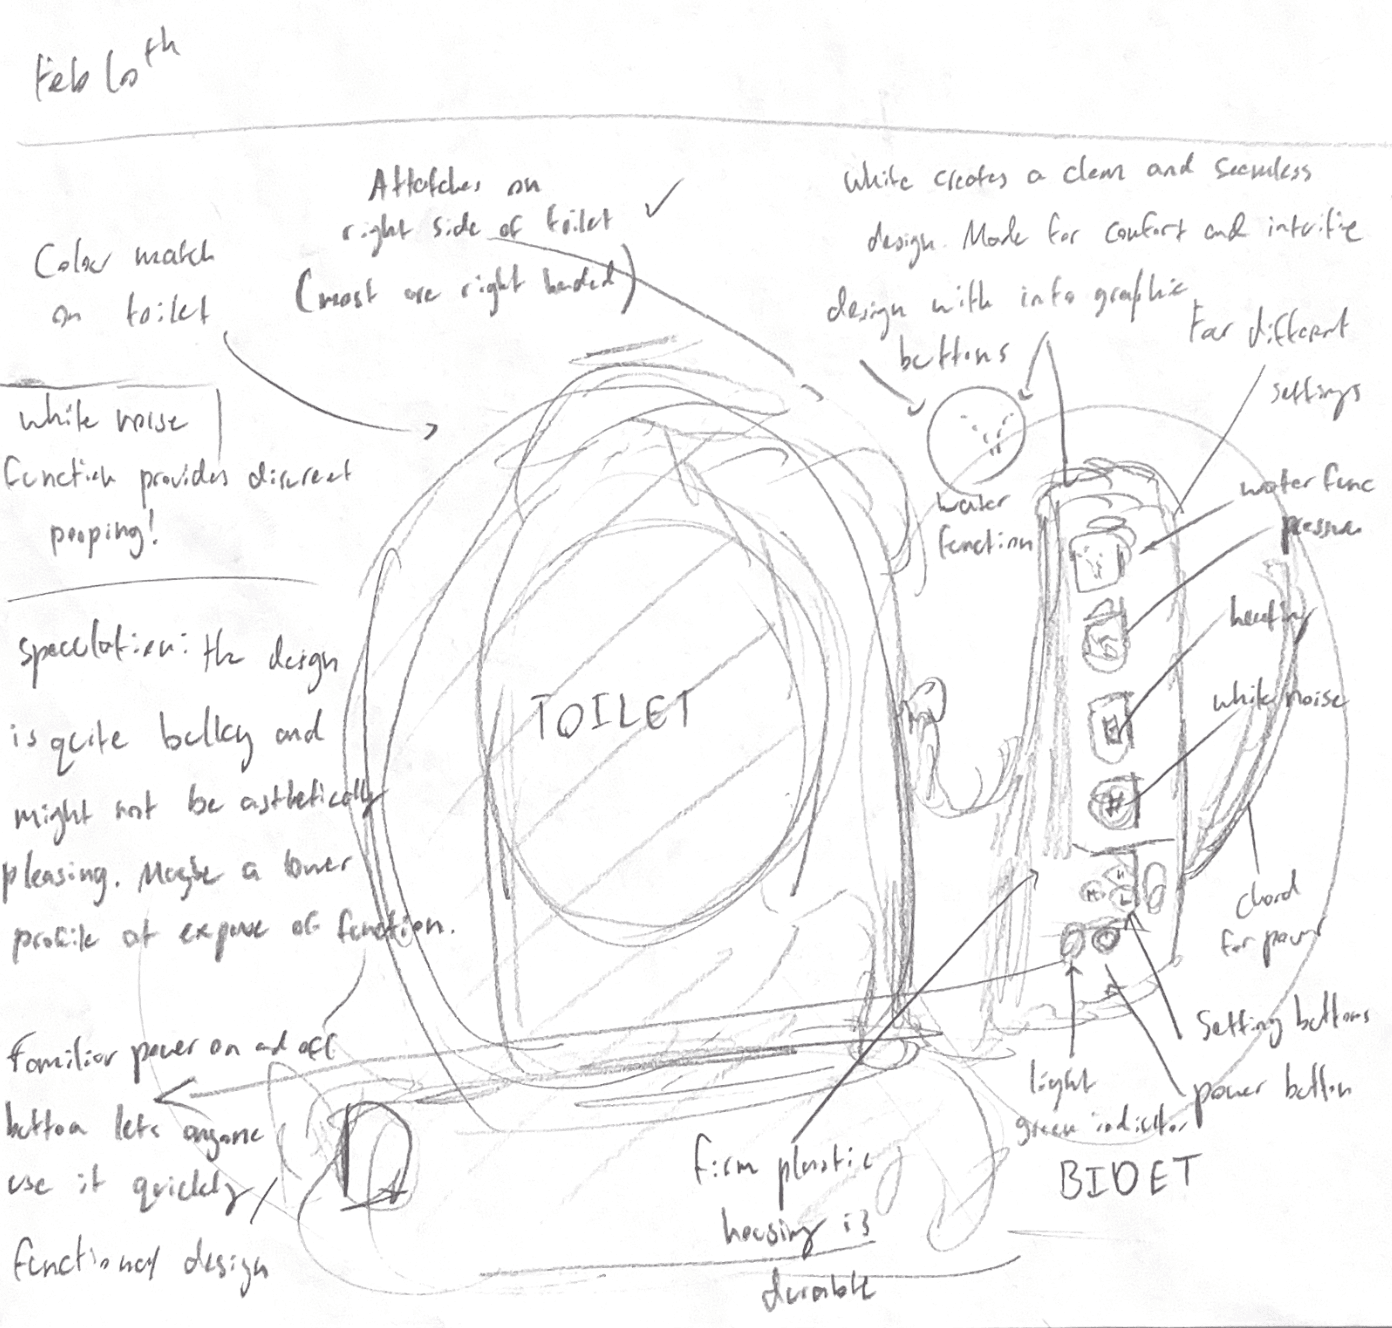 Feb 10th
Attatches on
right side of toilet
(most are right handed)
White creates a clean and seamless
design. Made for comfort and intuitive
design with info graphic
buttons
Color match
on toilet
For different
settings
White noise
function provides discreet
pooping!
water
function
water func
pressure
heating
white noise
Speculation: the design
is quite bulky and
might not be asthetically
pleasing. Maybe a lower
profile at expense of function.
TOILET
chord
for power
Familiar power on and off
button lets anyone
use it quickly/
functional design
Setting buttons
power button
light
green indictor
BIDET
firm plastic
housing is
durable